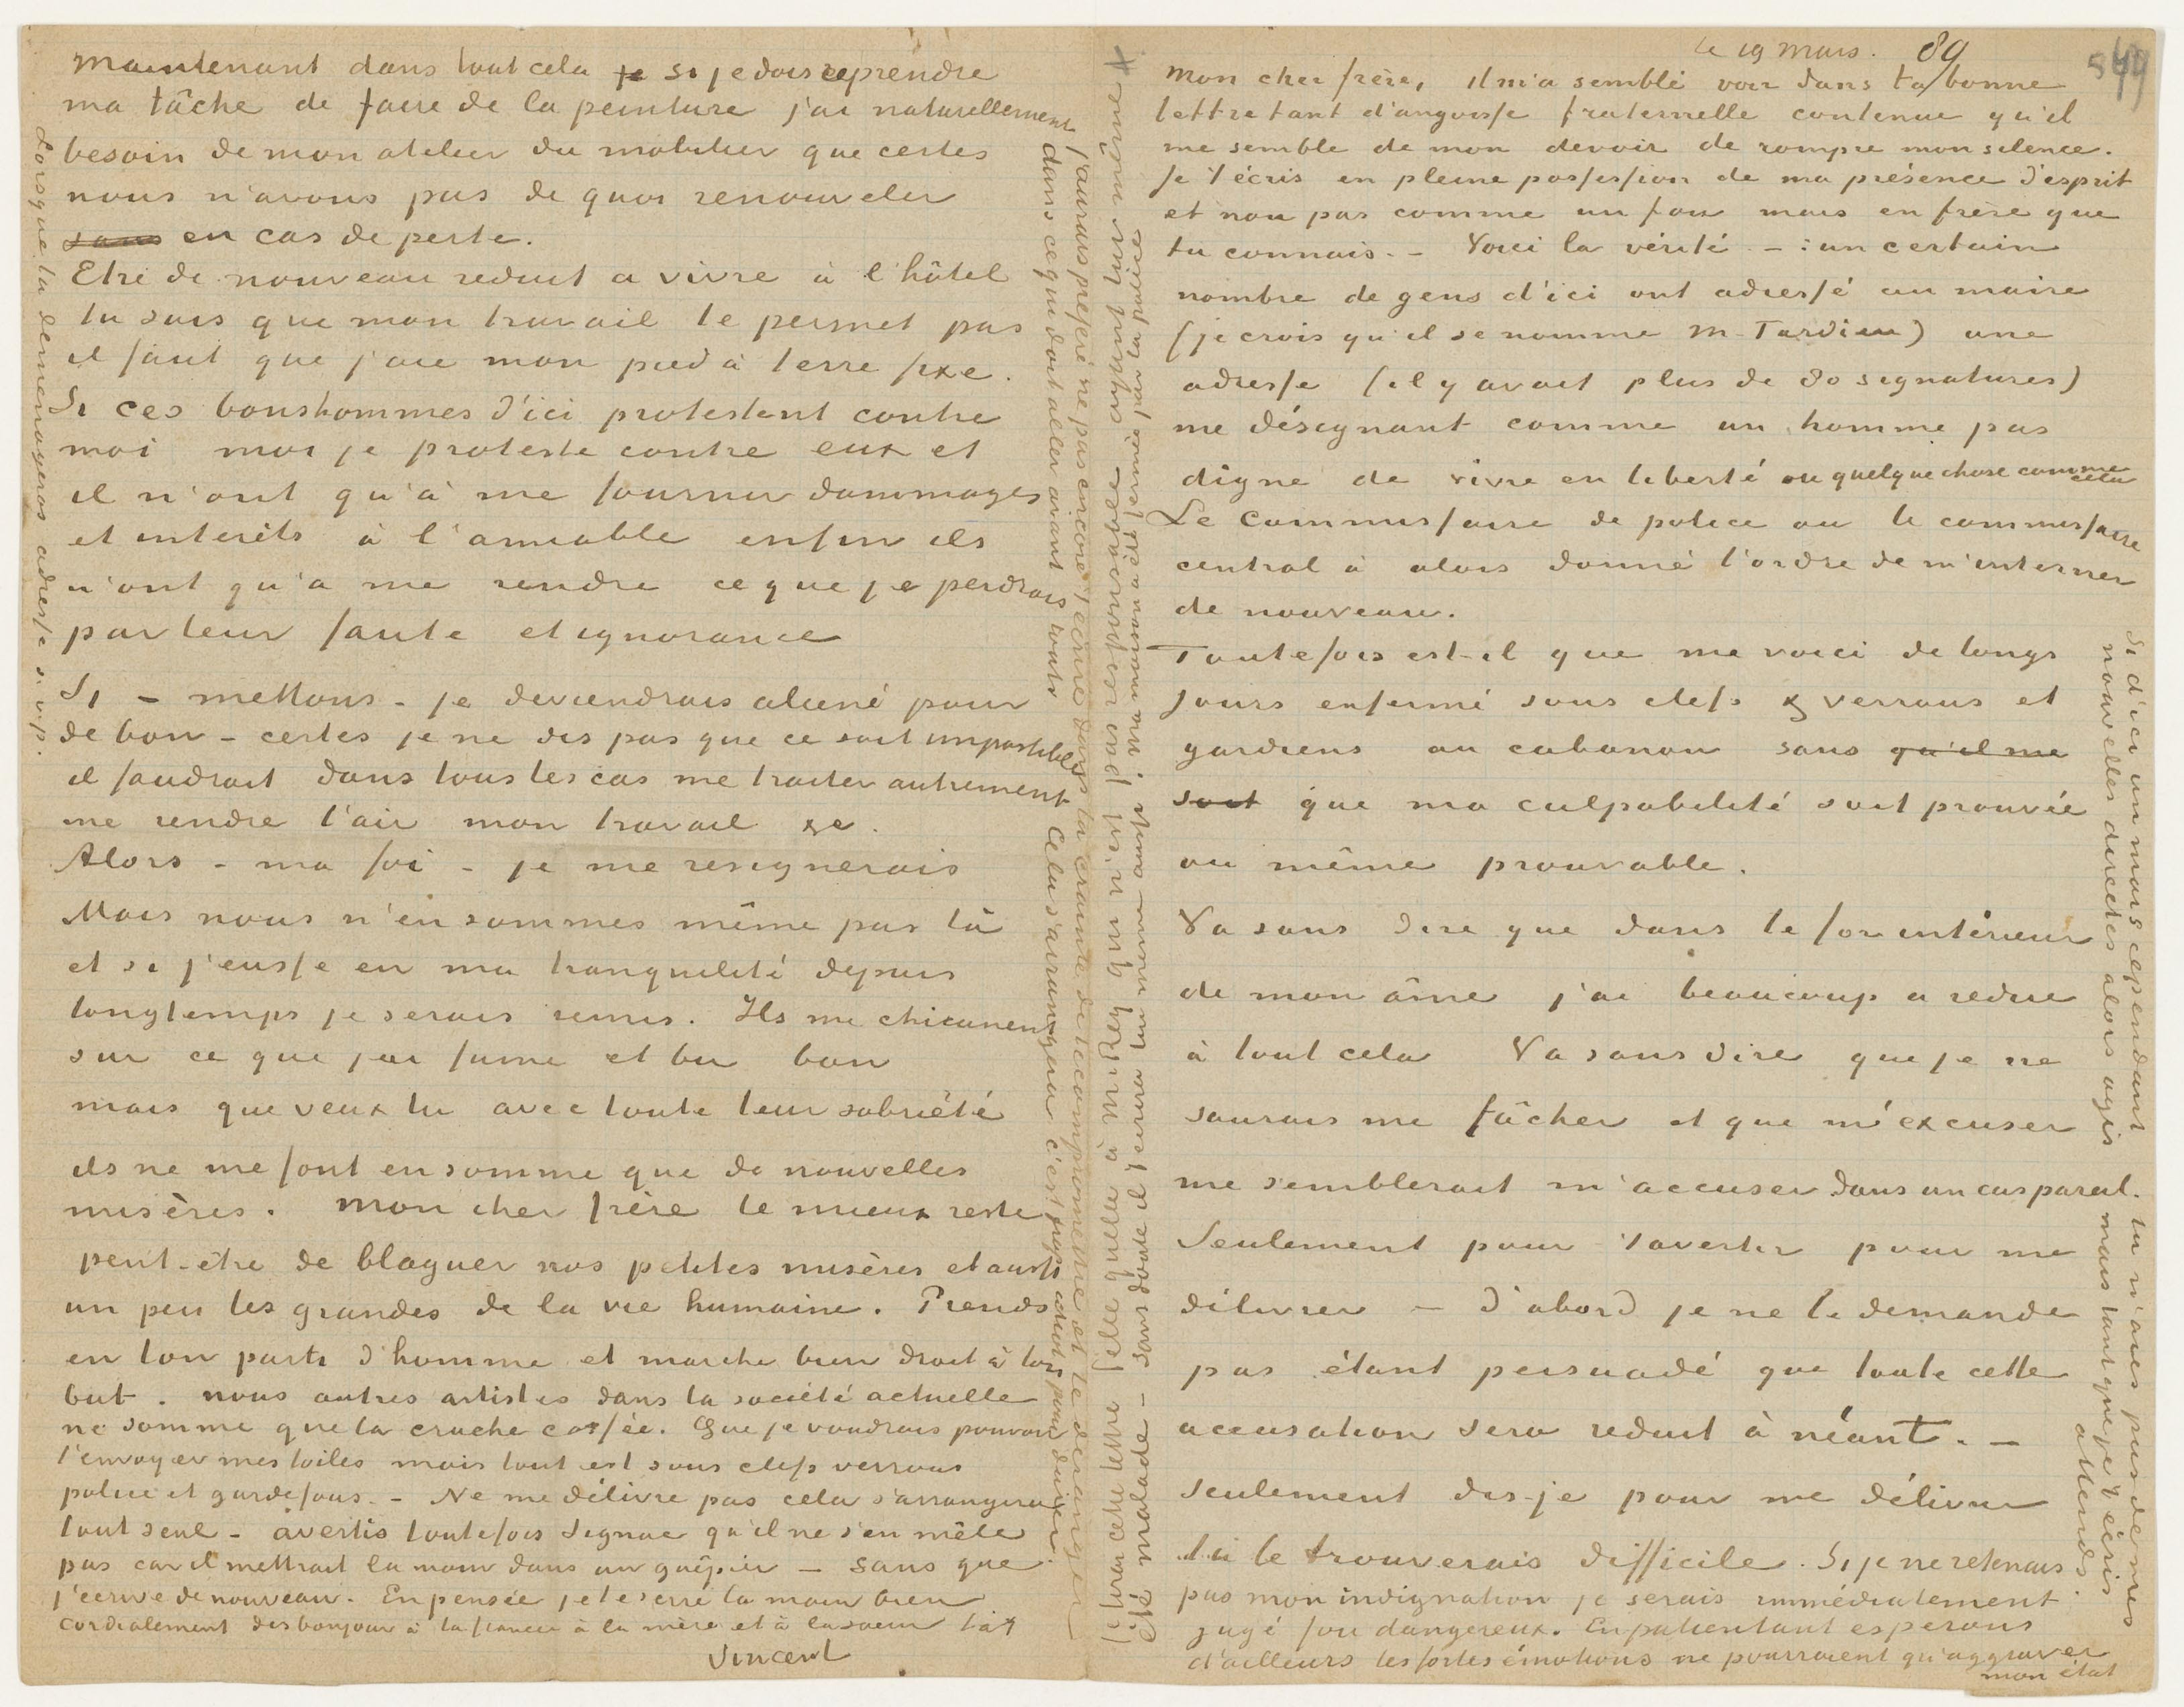 le 19 mars. 89
Mon cher frère, il m'a semblé voir dans ta bonne
lettre tant d'angoisse fraternelle contenue qu'il
me semble de mon devoir de rompre mon silence.
Je t'écris en pleine possession de ma présence d'esprit
et non pas comme un fou mais en frère que
tu connais. — Voici la vérité — : un certain
nombre de gens d'ici ont adressé au maire
(je crois qu'il se nomme M. Tardieu) une
adresse (il y avait plus de 80 signatures)
me désignant comme un homme pas
digne de vivre en liberté ou quelque chose comme cela
Le commissaire de police ou le commissaire
central à alors donné l'ordre de m'interner
de nouveau.
Toutefois est-il que me voici de longs
jours enfermé sous clefs & verrous et
gardiens au cabanon sans qu'il me
soit que ma culpabilité soit prouvée
ou même prouvable.
Va sans dire que dans le for intérieur
de mon âme j'ai beaucoup a redire
à tout cela Va sans dire que je ne
saurais me fâcher et que m'excuser
me semblerait m'accuser dans un cas pareil.
Seulement pour t'avertir pour me
délivrer — D'abord je ne le demande
pas étant persuadé que toute cette
accusation sera réduit à néant. —
Seulement dis-je pour me délivrer
tu le trouverais difficile. Si je ne retenais
pas mon indignation je serais immédiatement
jugé fou dangereux. En patientant esperons
d'ailleurs les fortes émotions ne pourraient qu'aggraver
mon état
Si d'ici un mois cependant tu n'aies pas de mes
nouvelles directes alors agis mais tant que je t'écris
attends.
Maintenant dans tout cela je si je dois reprendre
ma tâche de faire de la peinture j'ai naturellement
besoin de mon atelier du mobilier que certes
nous n'avons pas de quoi renouveler
sans en cas de perte.
Etre de nouveau reduit a vivre à l'hôtel
tu sais que mon travail le permet pas
il faut que j'aie mon pied à terre fixe.
Si ces bonshommes d'ici protestent contre
moi moi je proteste contre eux et
il n'ont qu'à me fournir dommages
et interêts à l'amiable enfin ils
n'ont qu'a me rendre ce que je perdrais
par leur faute et ignorance
Si – mettons – je deviendrais aliené pour
de bon – certes je ne dis pas que ce soit impossible
il faudrait dans tous les cas me traiter autrement
me rendre l'air mon travail &c.
Alors – ma foi – je me resignerais
Mais nous n'en sommes même pas là
et si j'eusse eu ma tranquilité depuis
longtemps je serais remis. Ils me chicanent
sur ce que j'ai fumé et bu bon
mais que veux tu avec toute leur sobriété
ils ne me font en somme que de nouvelles
misères. Mon cher frère le mieux reste
peut-être de blaguer nos petites misères et aussi
un peu les grandes de la vie humaine. Prends
en ton parti d'homme et marche bien droit à ton
but. Nous autres artistes dans la société actuelle
ne somme que la cruche cassée. Que je voudrais pouvoir
t'envoyer mes toiles mais tout est sous clefs verrous
police et gardefous. – Ne me délivre pas cela s'arrangera
tout seul – avertis toutefois Signac qu'il ne s'en mêle
pas car il mettrait la main dans un guêpier – sans que
j'écrive de nouveau. En pensée je te serre la main bien
cordialement dis bonjour à ta fiancée à la mère et à la soeur t à t
Vincent
Lorsque tu demenageras adresse s.v.p.
j'aurais preferé ne pas encore t'ecrire dans la crainte de te compromettre et te déranger
dans ce qui doit aller avant tout Cela s'arrangera c'est trop idiot pour durer.
Je lirai cette lettre telle quelle à M. Rey qui n'est pas responsable ayant lui même
été malade – sans doute il t'ecrira lui même aussi. Ma maison a été fermée par la police